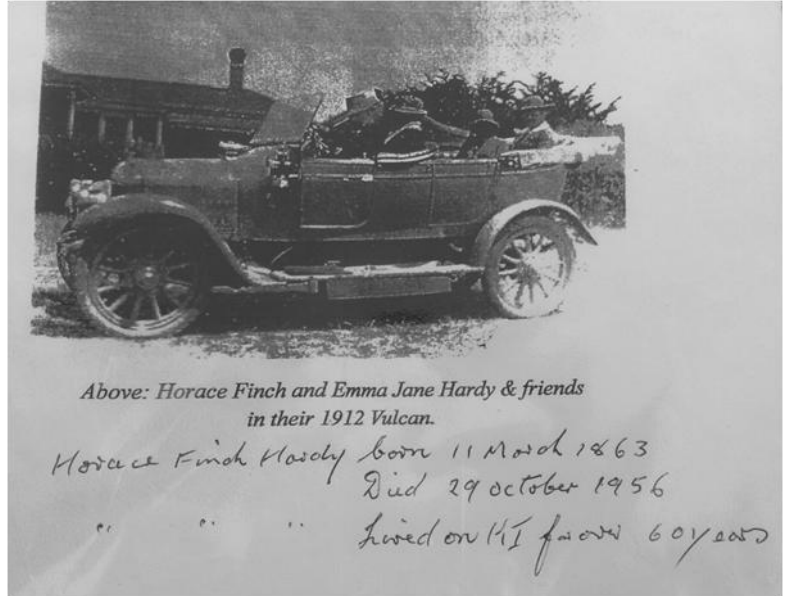 Above: Horace Finch and Emma Jane Hardy & friends
in their 1912 Vulcan.
Horace Finch Hardy born 11 March 1863
Died 29 October 1956
" " " Lived on KI for over 60 years